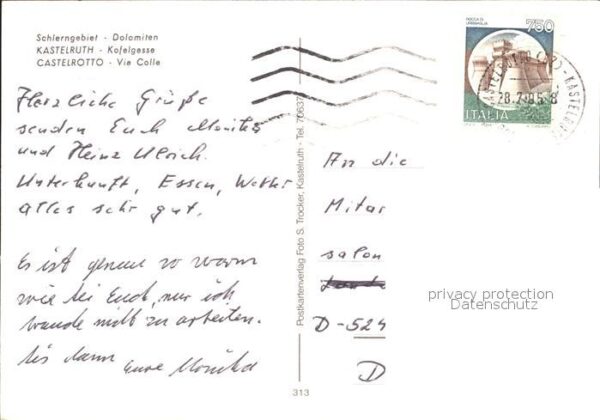 Schlerngebiet - Dolomiten
KASTELRUTH - Kofelgasse
CASTELROTTO - Via Colle
Herzliche Grüße
senden Euch Monika
und Heinz Ulrich.
Unterkunft, Essen, Wetter
alles sehr gut.
Es ist genau so warm
wie bei Euch, nur ich
brauche nicht zu arbeiten.
Bis dann Eure Monika
Postkartenverlag Foto S. Trocker, Kastelruth - Tel. 70637
313
ROCCA DI
URBISAGLIA
750
ITALIA
KASTELRUTH
An die
Mitar
salon
D-524
D
privacy protection
Datenschutz